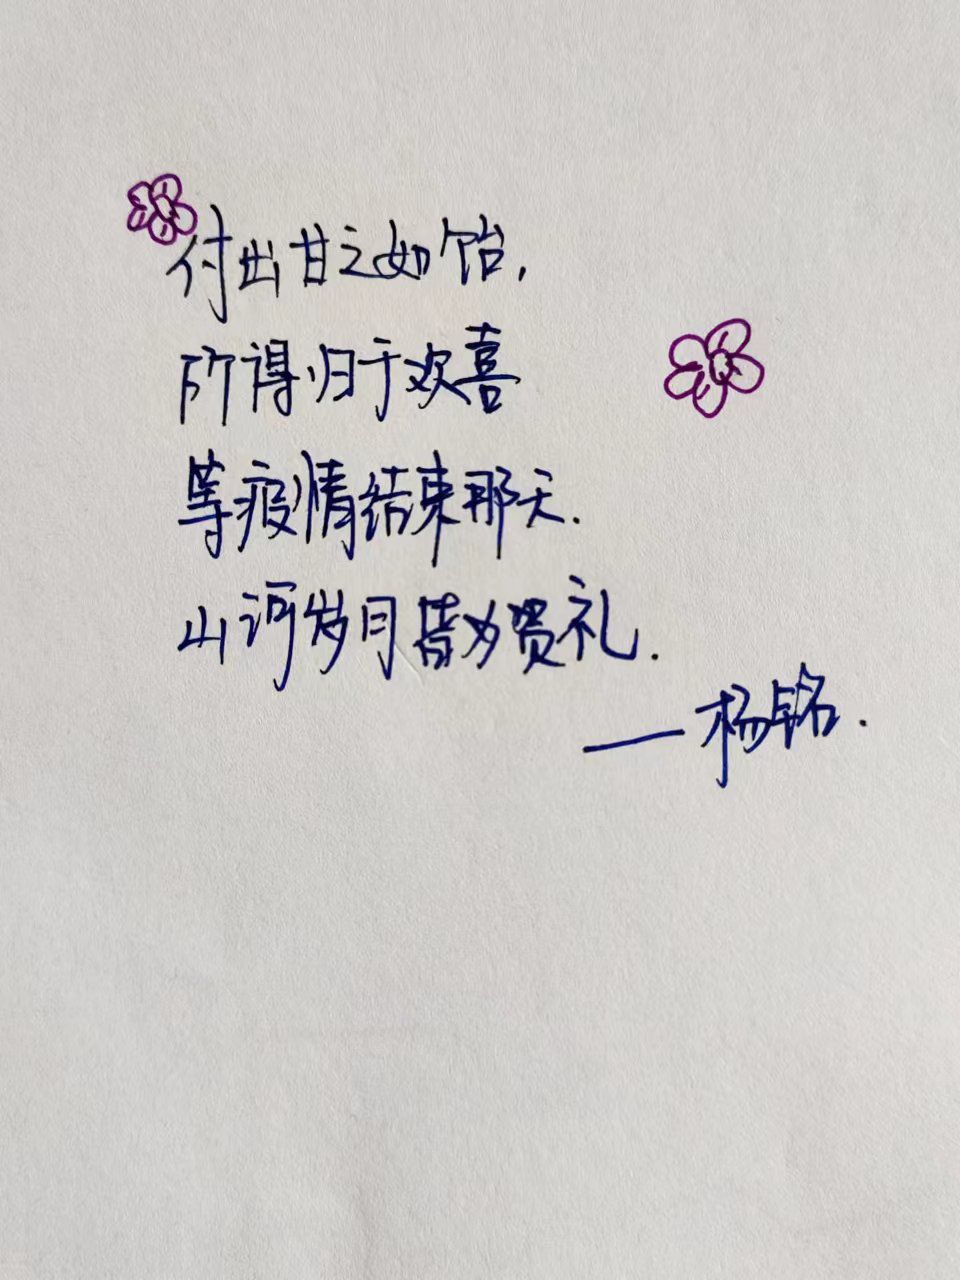 付出甘之如饴,
所得归于欢喜
等疫情结束那天.
山河岁月皆为贺礼.
——杨铭.